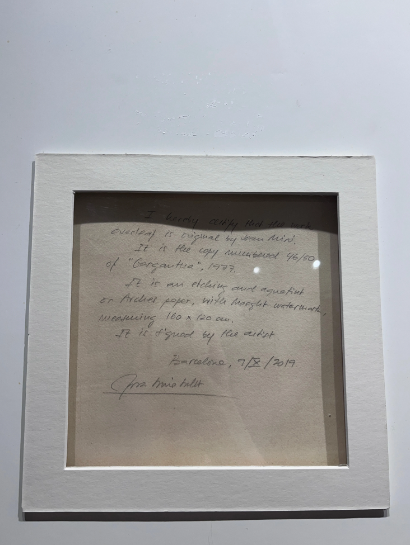 I hereby certify that the work
overleaf is original by Joan Miró.
It is the copy numbered 46/50
of "Gargantua", 1977.
It is an etching and aquatint
on Arches paper, with Maeght watermark,
measuring 160 x 120 cm.
It is signed by the artist
Barcelona, 7/X/2019